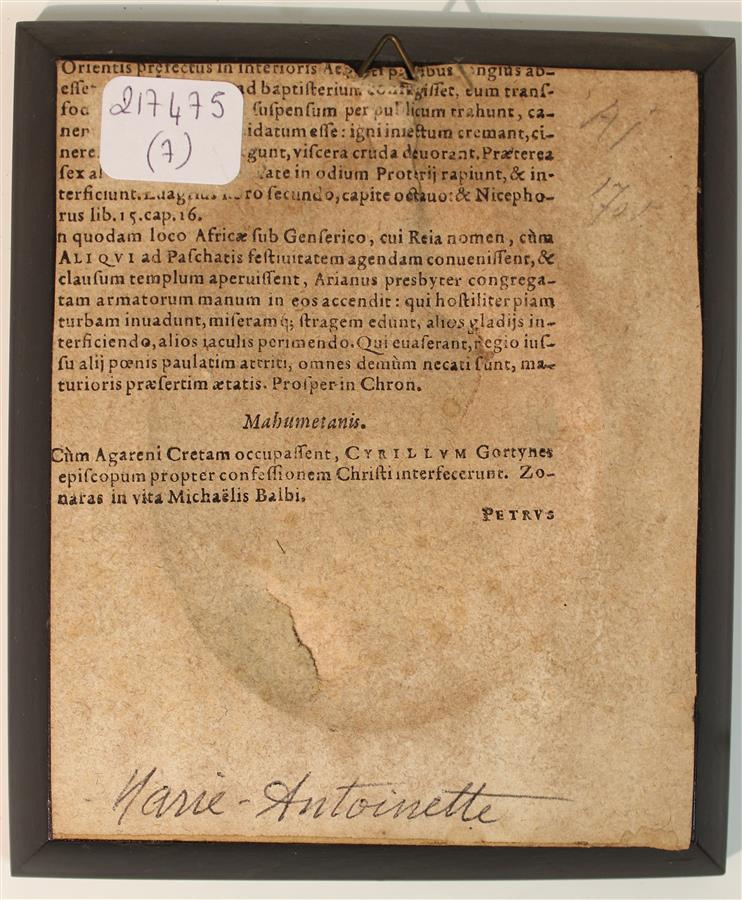 Orientis præfectus in interioris Aegypti partibus longius ab-
esset ad baptisterium confugisset, eum transf-
fod suspensum per publicum trahunt, ca-
ner idatum esse: igni iniectum cremant, ci-
nere gunt, viscera cruda deuorant. Præterea
sex al tate in odium Proterij rapiunt, & in-
terficiunt. Euagrius libro secundo, capite octauo: & Nicepho-
rus lib. 15. cap. 16.
n quodam loco Africæ sub Genserico, cui Reia nomen, cùm
ALIQVI ad Paschatis festiuitatem agendam conuenissent, &
clausum templum aperuissent, Arianus presbyter congrega-
tam armatorum manum in eos accendit: qui hostiliter piam
turbam inuadunt, miseramq; stragem edunt, alios gladijs in-
terficiendo, alios iaculis perimendo. Qui euaserant, regio ius-
su alij pœnis paulatim attriti, omnes demùm necati sunt, ma-
turioris præsertim ætatis. Prosper in Chron.
Mahumetanis.
Cùm Agareni Cretam occupassent, CYRILLVM Gortynes
episcopum propter confessionem Christi interfecerunt. Zo-
naras in vita Michaëlis Balbi.
PETRVS
217475
(7)
Marie-Antoinette